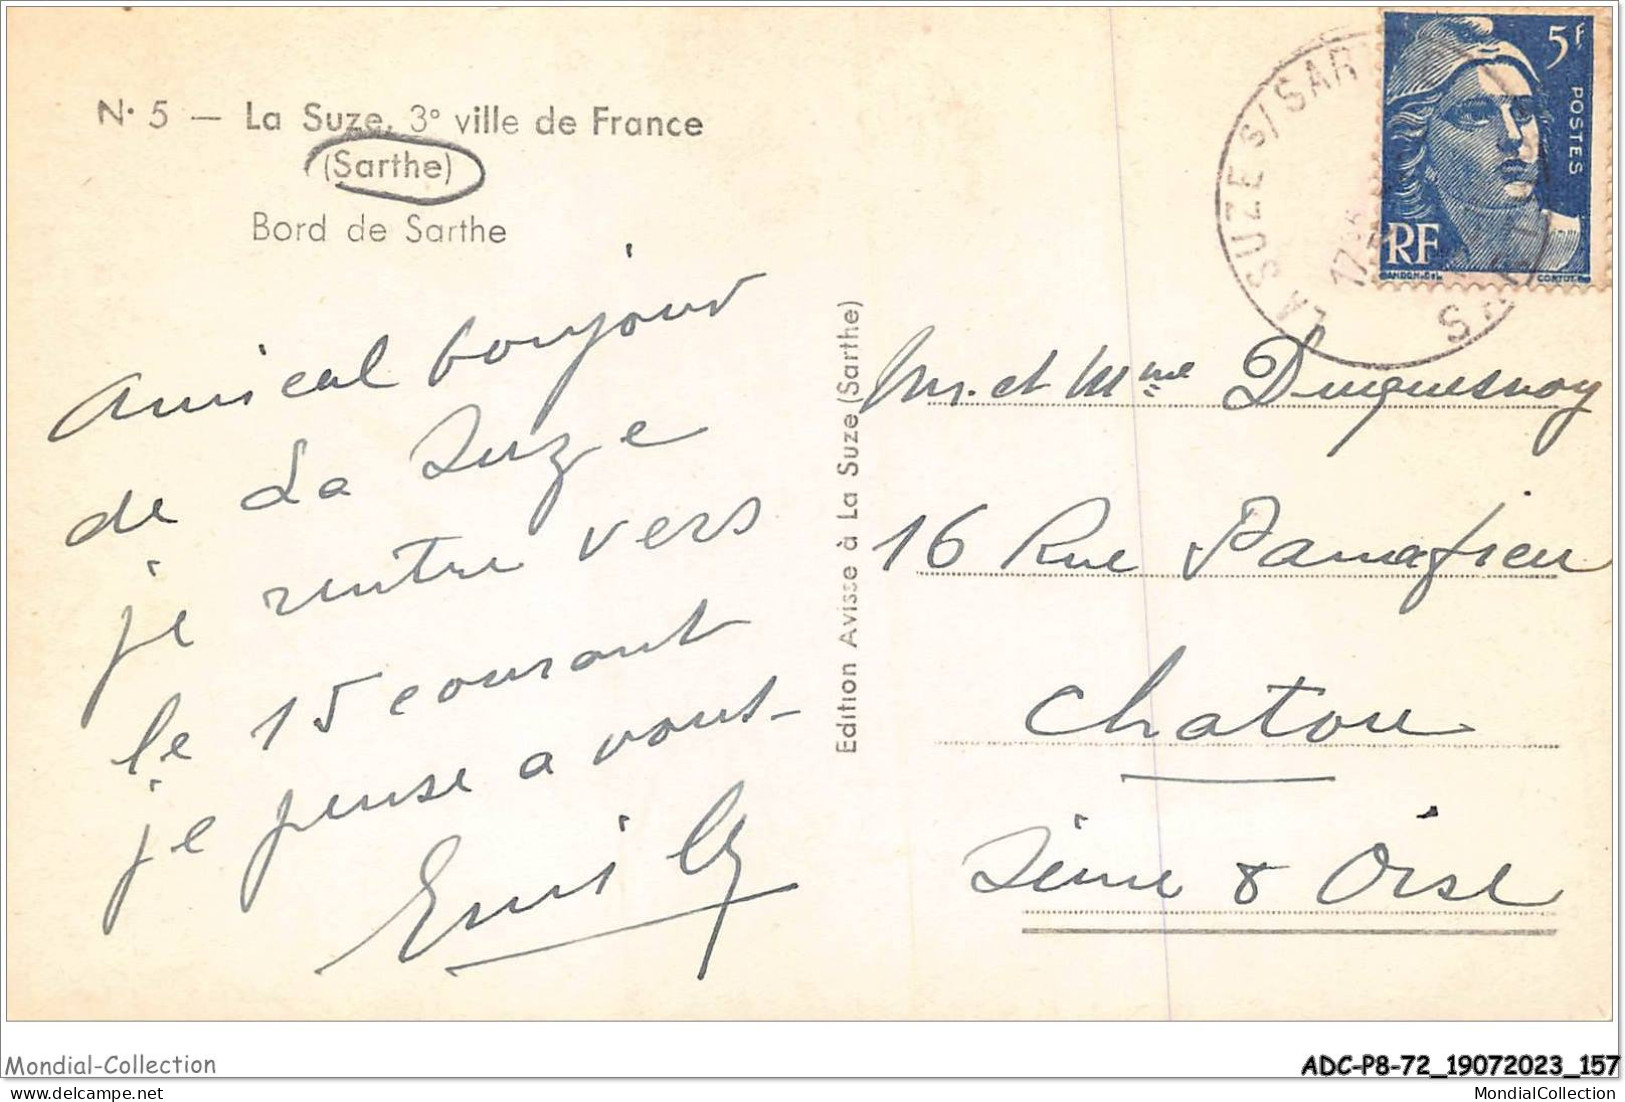 N• 5 — La Suze, 3º ville de France
(Sarthe)
Bord de Sarthe
Amical bonjour
de La Suze
je rentre vers
le 15 courant
je pense a vous-
Emily
Edition Avisse à La Suze (Sarthe)
LA SUZE S/ SAR
5f
POSTES
RF
Mr. et Mme Duquesnoy
16 Rue Panafieu
Chatou
Seine & Oise
Mondial-Collection
ADC-P8-72_19072023_157
MondialCollection